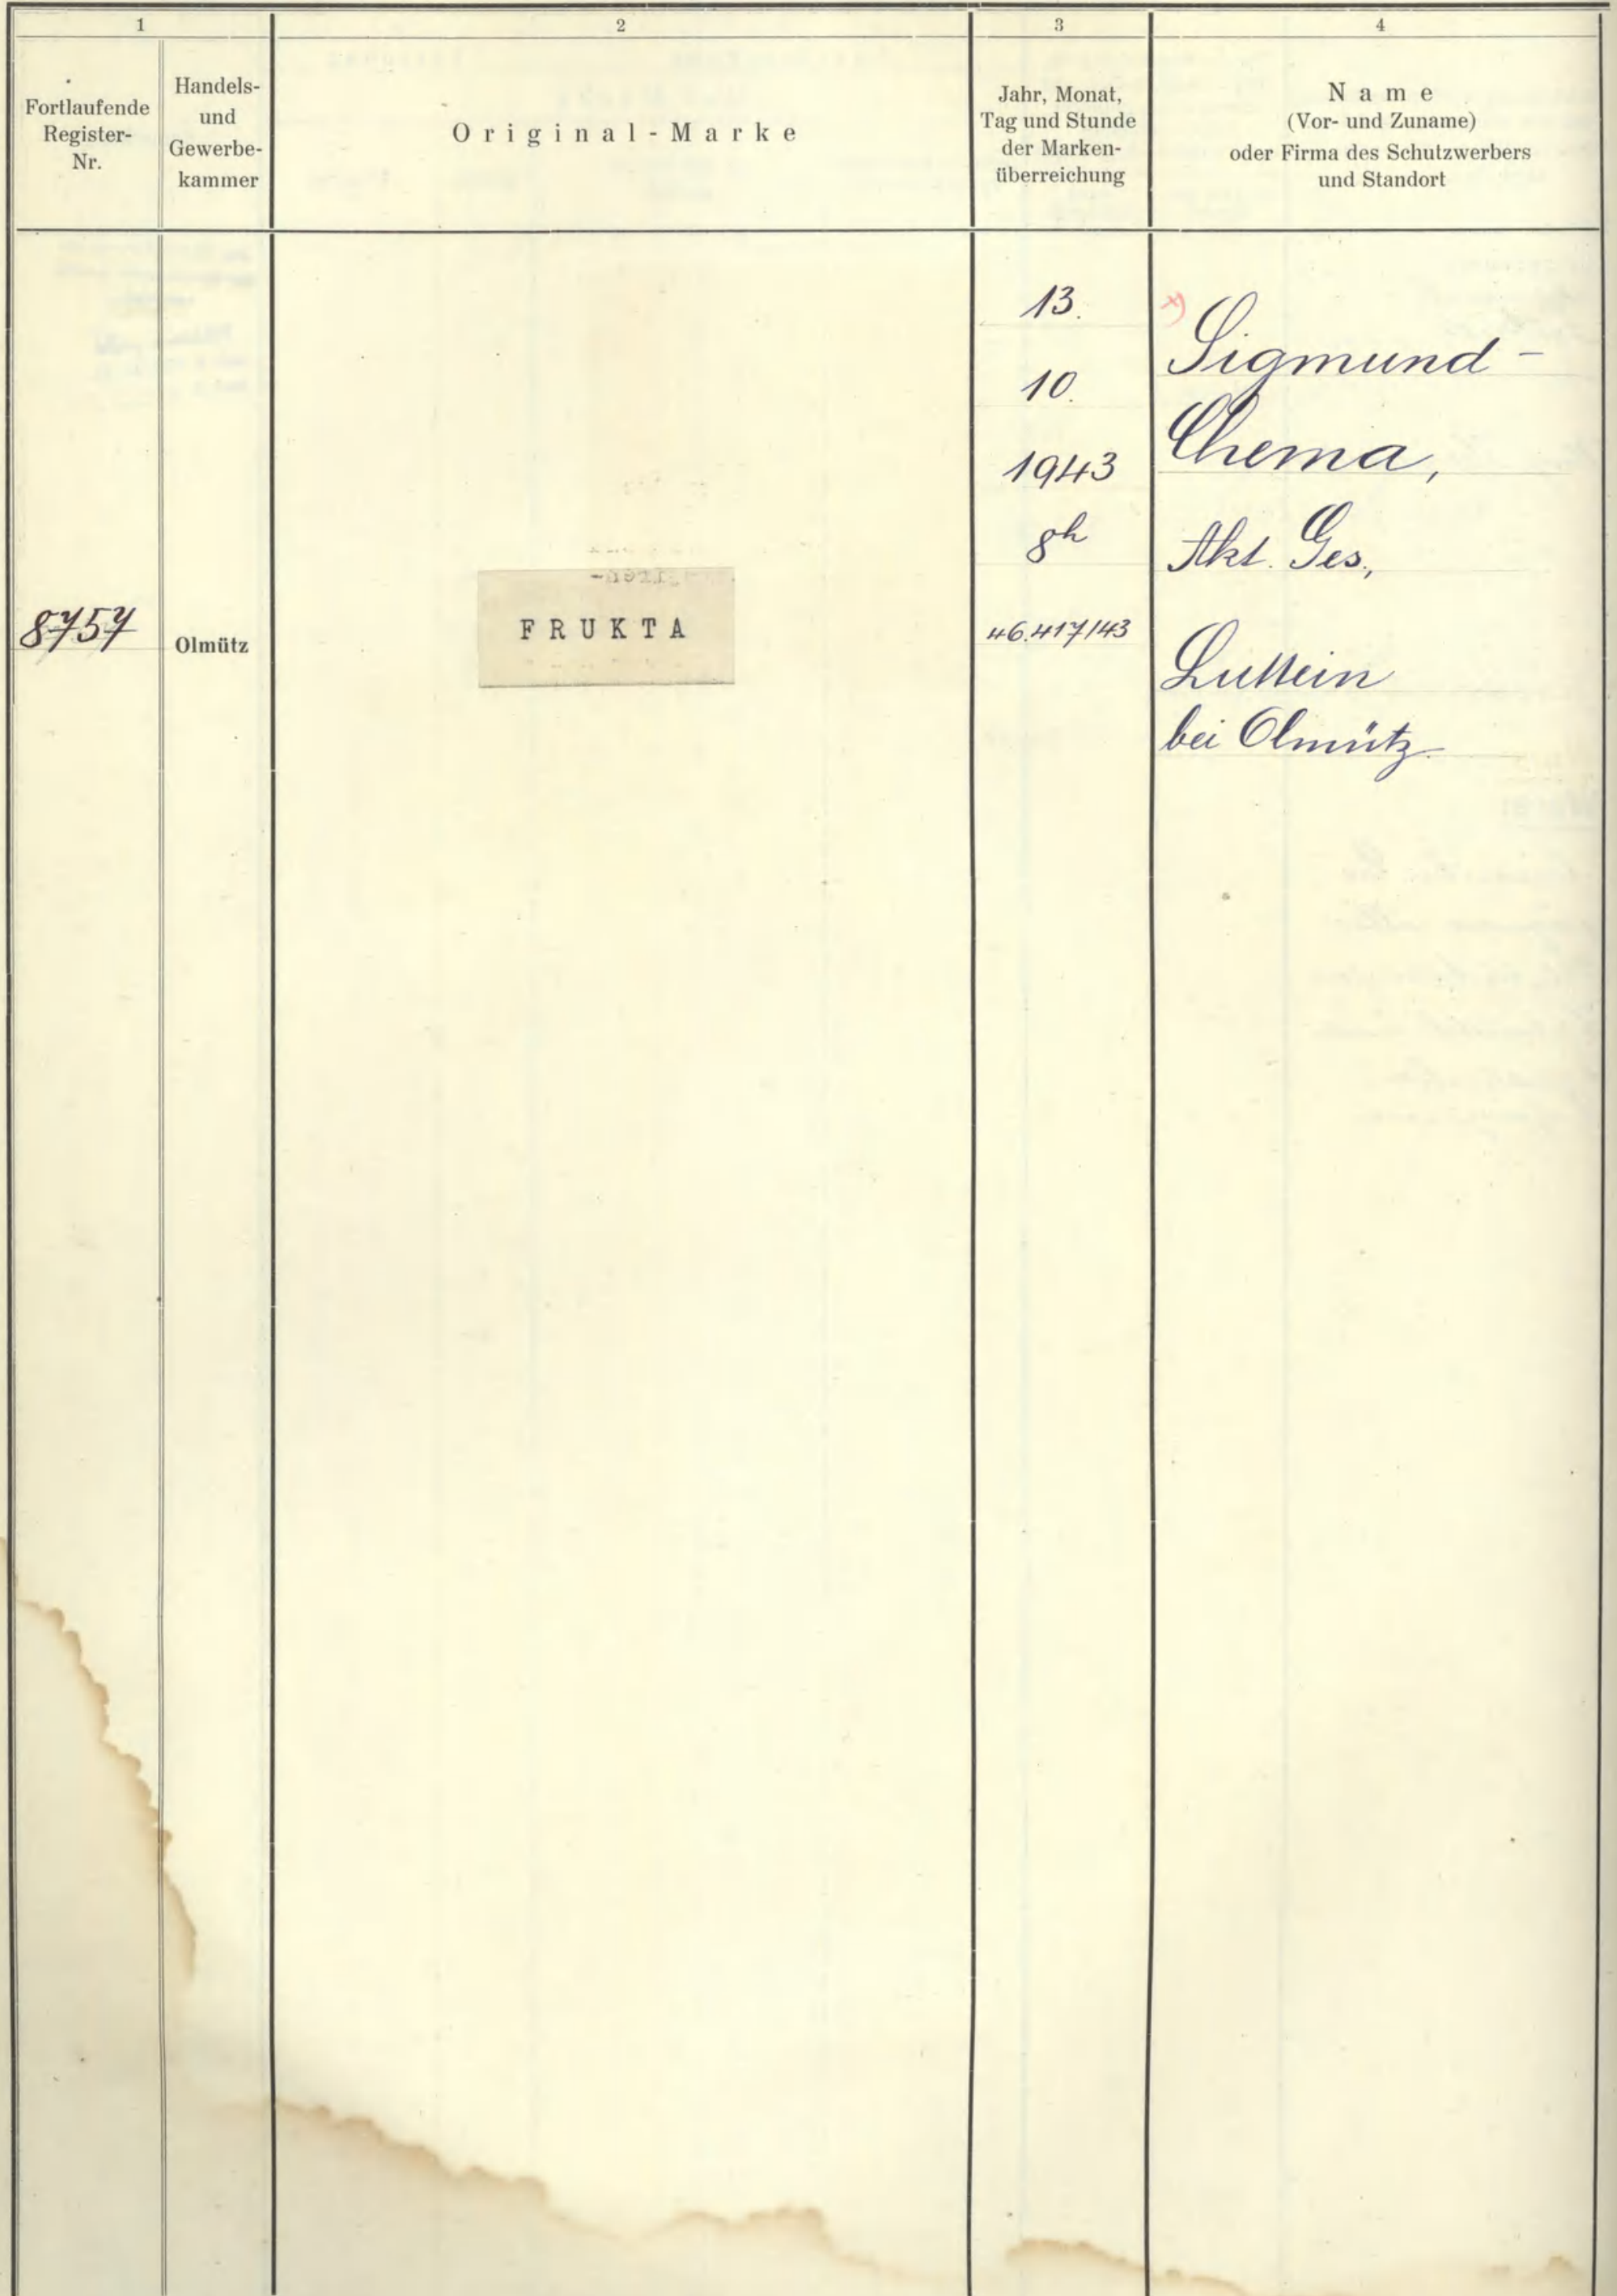 1
2
3
4
Fortlaufende
Register-
Nr.
Handels-
und
Gewerbe-
kammer
Original-Marke
Jahr, Monat,
Tag und Stunde
der Marken-
überreichung
Name
(Vor- und Zuname)
oder Firma des Schutzwerbers
und Standort
8757
Olmütz
FRUKTA
13.
10.
1943
8h
46.417/43
x)
Sigmund-
Chema,
Akt. Ges.,
Luttein
bei Olmütz